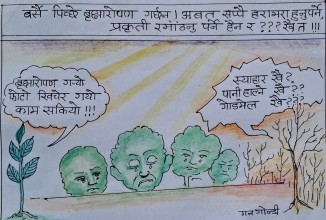 बर्सै पिच्छे बृक्षारोपण गर्छन । अबत सप्पै हराभरा हुनुपर्ने
प्रकृती रमाउनु पर्ने हैन र ??? खै त !!!
बृक्षारोपण गर्‍यो
फोटो खिचेर गयो
काम सकियो !!!
स्याहार खै ?
पानी हाल्ने खै ??
गोडमेल खै ???